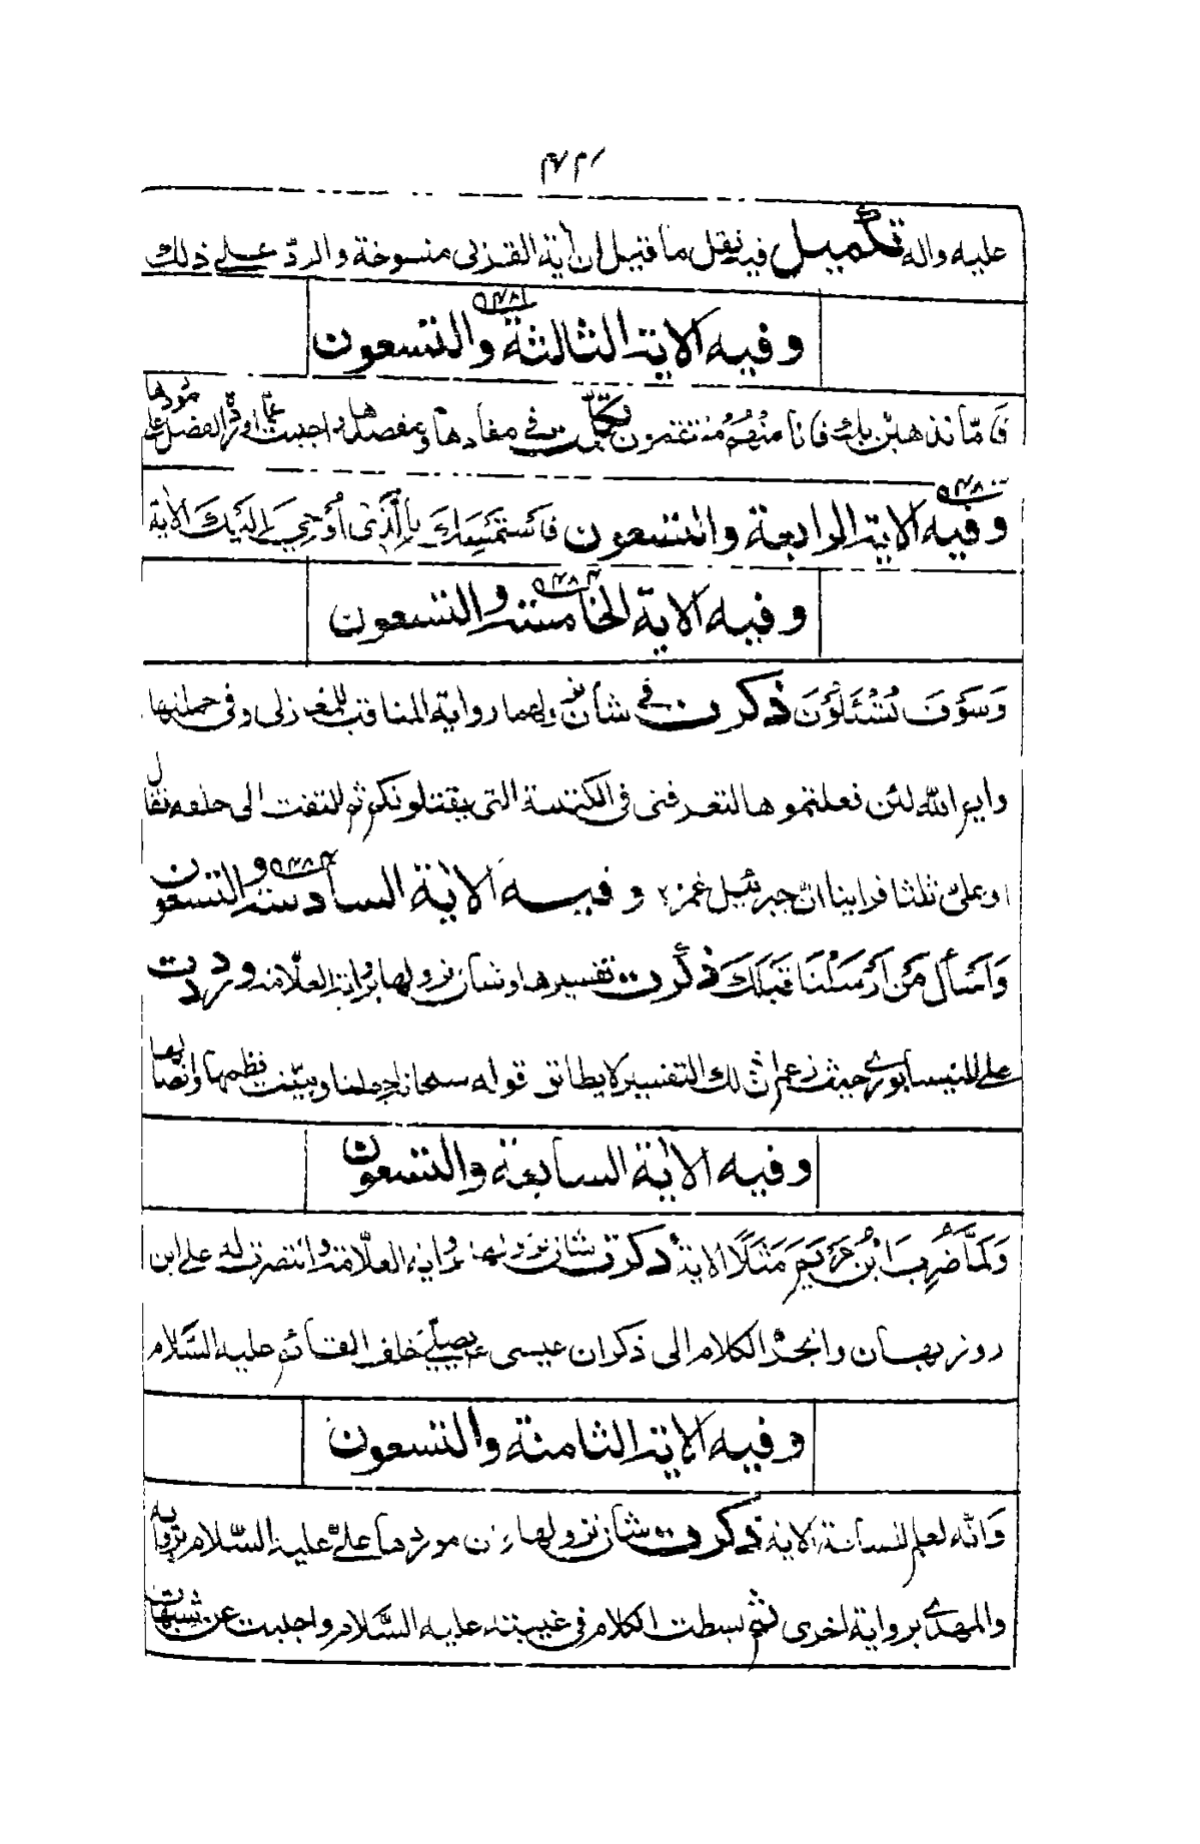 عليه واله تكميل فيه نقل ما قيل ان آية القربى منسوخة والردّ على ذلك
وفيه الاية الثالثة والتسعون
فَامّا نذهبنّ بك فانا منهم منتقمون تكلمت في مفادها واجبت عمّا الفضل على
وفيه الاية الرابعة والتسعون فَاسْتَمْسِكْ بِالَّذِي أُوحِيَ إِلَيْكَ الاية
وفيه الاية الخامسة والتسعون
وَسَوْفَ تُسْئَلُونَ ذكرت في شأن نزولها رواية المناقب للمغازلى وفى جملتها
وايم الله لئن فعلتموها لتعرفنى فى الكتيبة التى يقتلونكم ثم التفت الى خلفه فقال
او على ثلثا فراينا انّ جبرئيل غمزه وفيه الاية السادسة والتسعون
وَاسْأَلْ مَنْ أَرْسَلْنَا قَبْلَكَ ذكرت تفسيرها وشان نزولها برواية العلّامة ورددت
على النيسابورى حيث زعم انّ ذلك التفسير لا يطابق قوله سبحانه اجعلنا وبيّنت نظمها واتصالها
وفيه الاية السابعة والتسعون
وَلَمَّا ضُرِبَ ابْنُ مَرْيَمَ مَثَلًا الاية ذكرت شان نزولها برواية العلّامة وانتصرت له على ابن
روزبهان وانجرّ الكلام الى ذكر ان عيسى ع يصلّى خلف القائم عليه السَّلام
وفيه الاية الثامنة والتسعون
وَانّه لعلم للساعة الاية ذكرت شان نزولها وان موردها علىّ عليه السّلام برواية
والمهدى برواية اخرى ثم بسطت الكلام فى غيبته عليه السَّلام واجبت عن شبهات